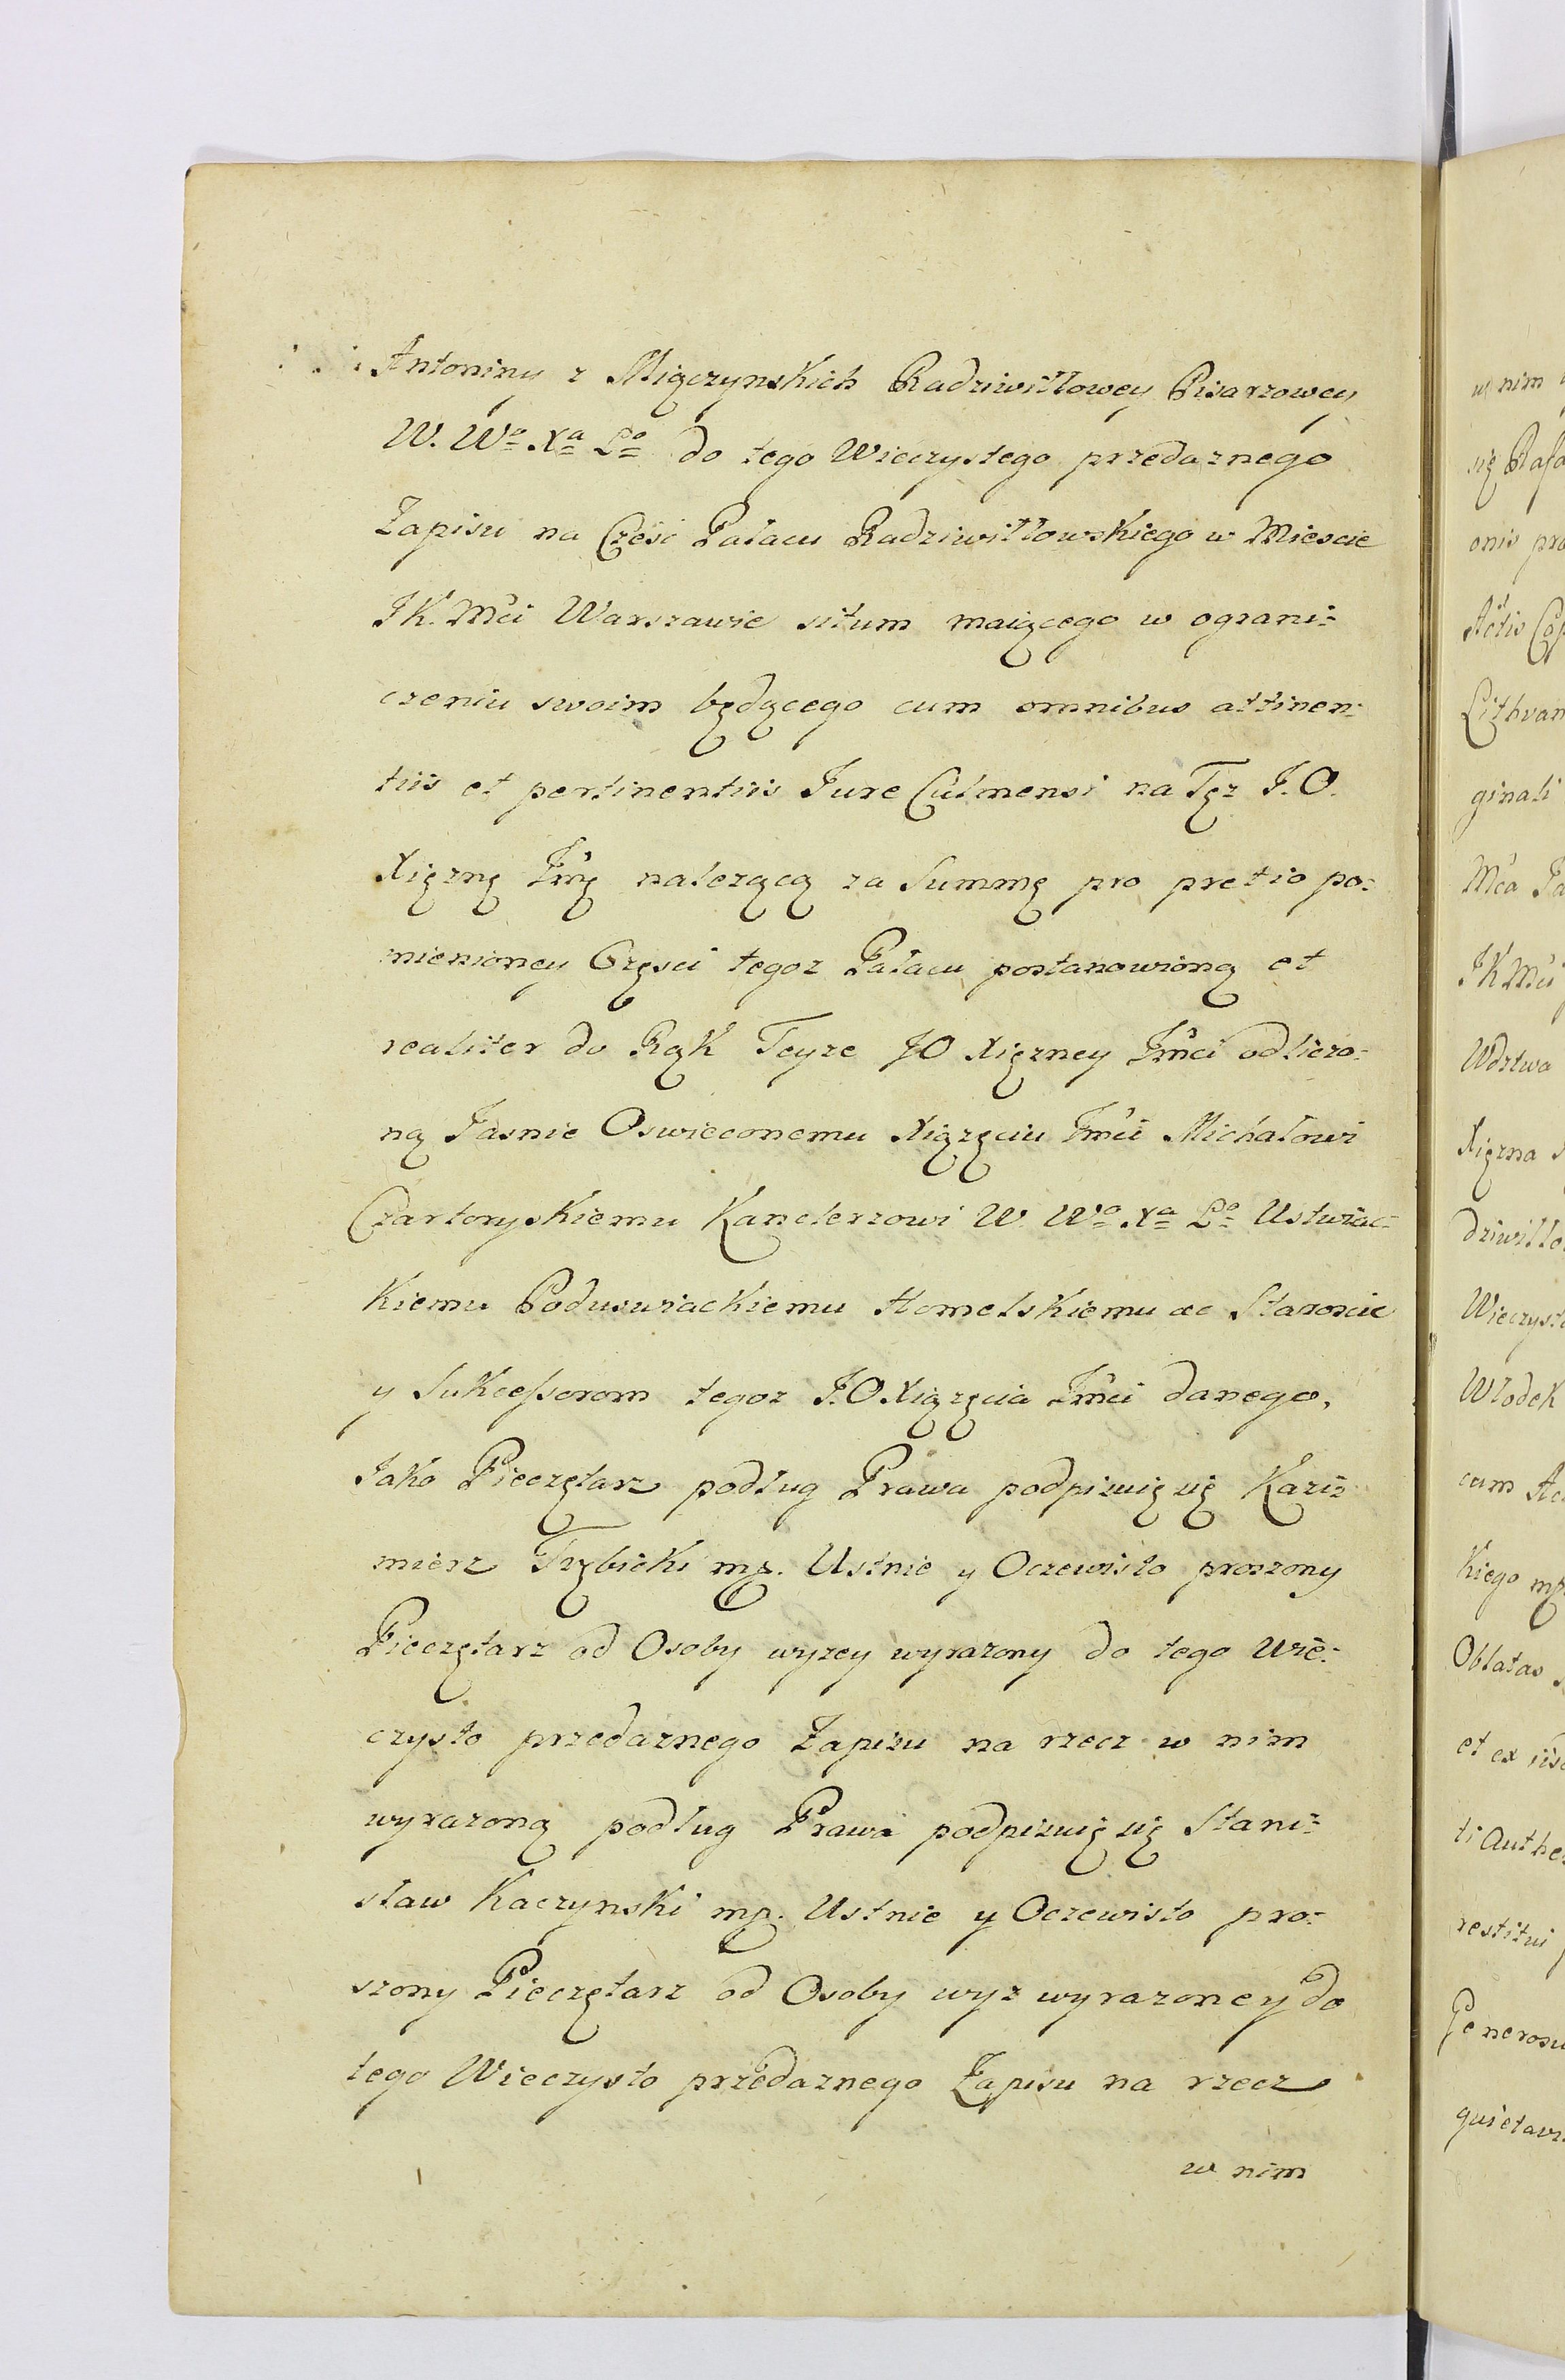 Antoniny z Miączynskich Radziwiłłowey Pisarzowey
W. Wo Xa Lo do tego Wieczystego przedaznego
Zapisu na Częsć Pałacu Radziwiłłowskiego w Miescie
JK. Mci Warszawie situm maiącego w ograni=
czeniu swoim będącego cum omnibus attinen=
tiis et pertinentiis Jure Culmensi na Tęz J. O.
Xięznę Jmę nalezącą za Summę pro pretio po=
mienioney Częsci tegoz Pałacu postanowioną et
realiter do Rąk Teyze JO Xięzney Jmci odliczo=
ną Jasnie Oswieconemu Xiązęciu Jmci Michałowi
Czartoryskiemu Kanclerzowi W. Wo Xa Lo Uswiac=
kiemu Poduswiackiemu Homelskiemu &c Staroscie
y Sukcessorom tegoz J.O Xiązęcia Jmci danego,
Jako Pieczętarz podług Prawa podpisuię się Kazi=
mierz Trębicki mp. Ustnie y Oczewisto proszony
Pieczętarz od Osoby wyzey wyrazony do tego Wie=
czysto przedaznego Zapisu na rzecz w nim
wyrazoną podług Prawa podpisuię się Stani=
sław Kaczynski mp. Ustnie y Oczewisto pro=
szony Pieczętarz od Osoby wyz wyrazoney do
tego Wieczysto przedaznego Zapisu na rzecz
w nim
w nim
się Rafa
onis pro
Actis Cap
Lithvan
ginali
Mca Pa
JKMci
Wdztwa
Xięzna
dziwiłło
Wieczysto
Włodek
cum Ac
kiego mp
Oblatas
et ex iisd
ti Authe
restitui
Generosu
quietavi